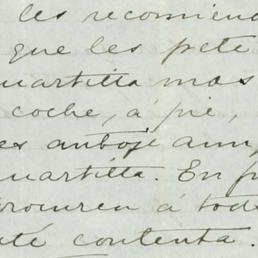 les recomiend
que les pete
uartitta mas
coche, á pie,
es antoje aun
uartitta. En p
rocuren á tod
té contenta.